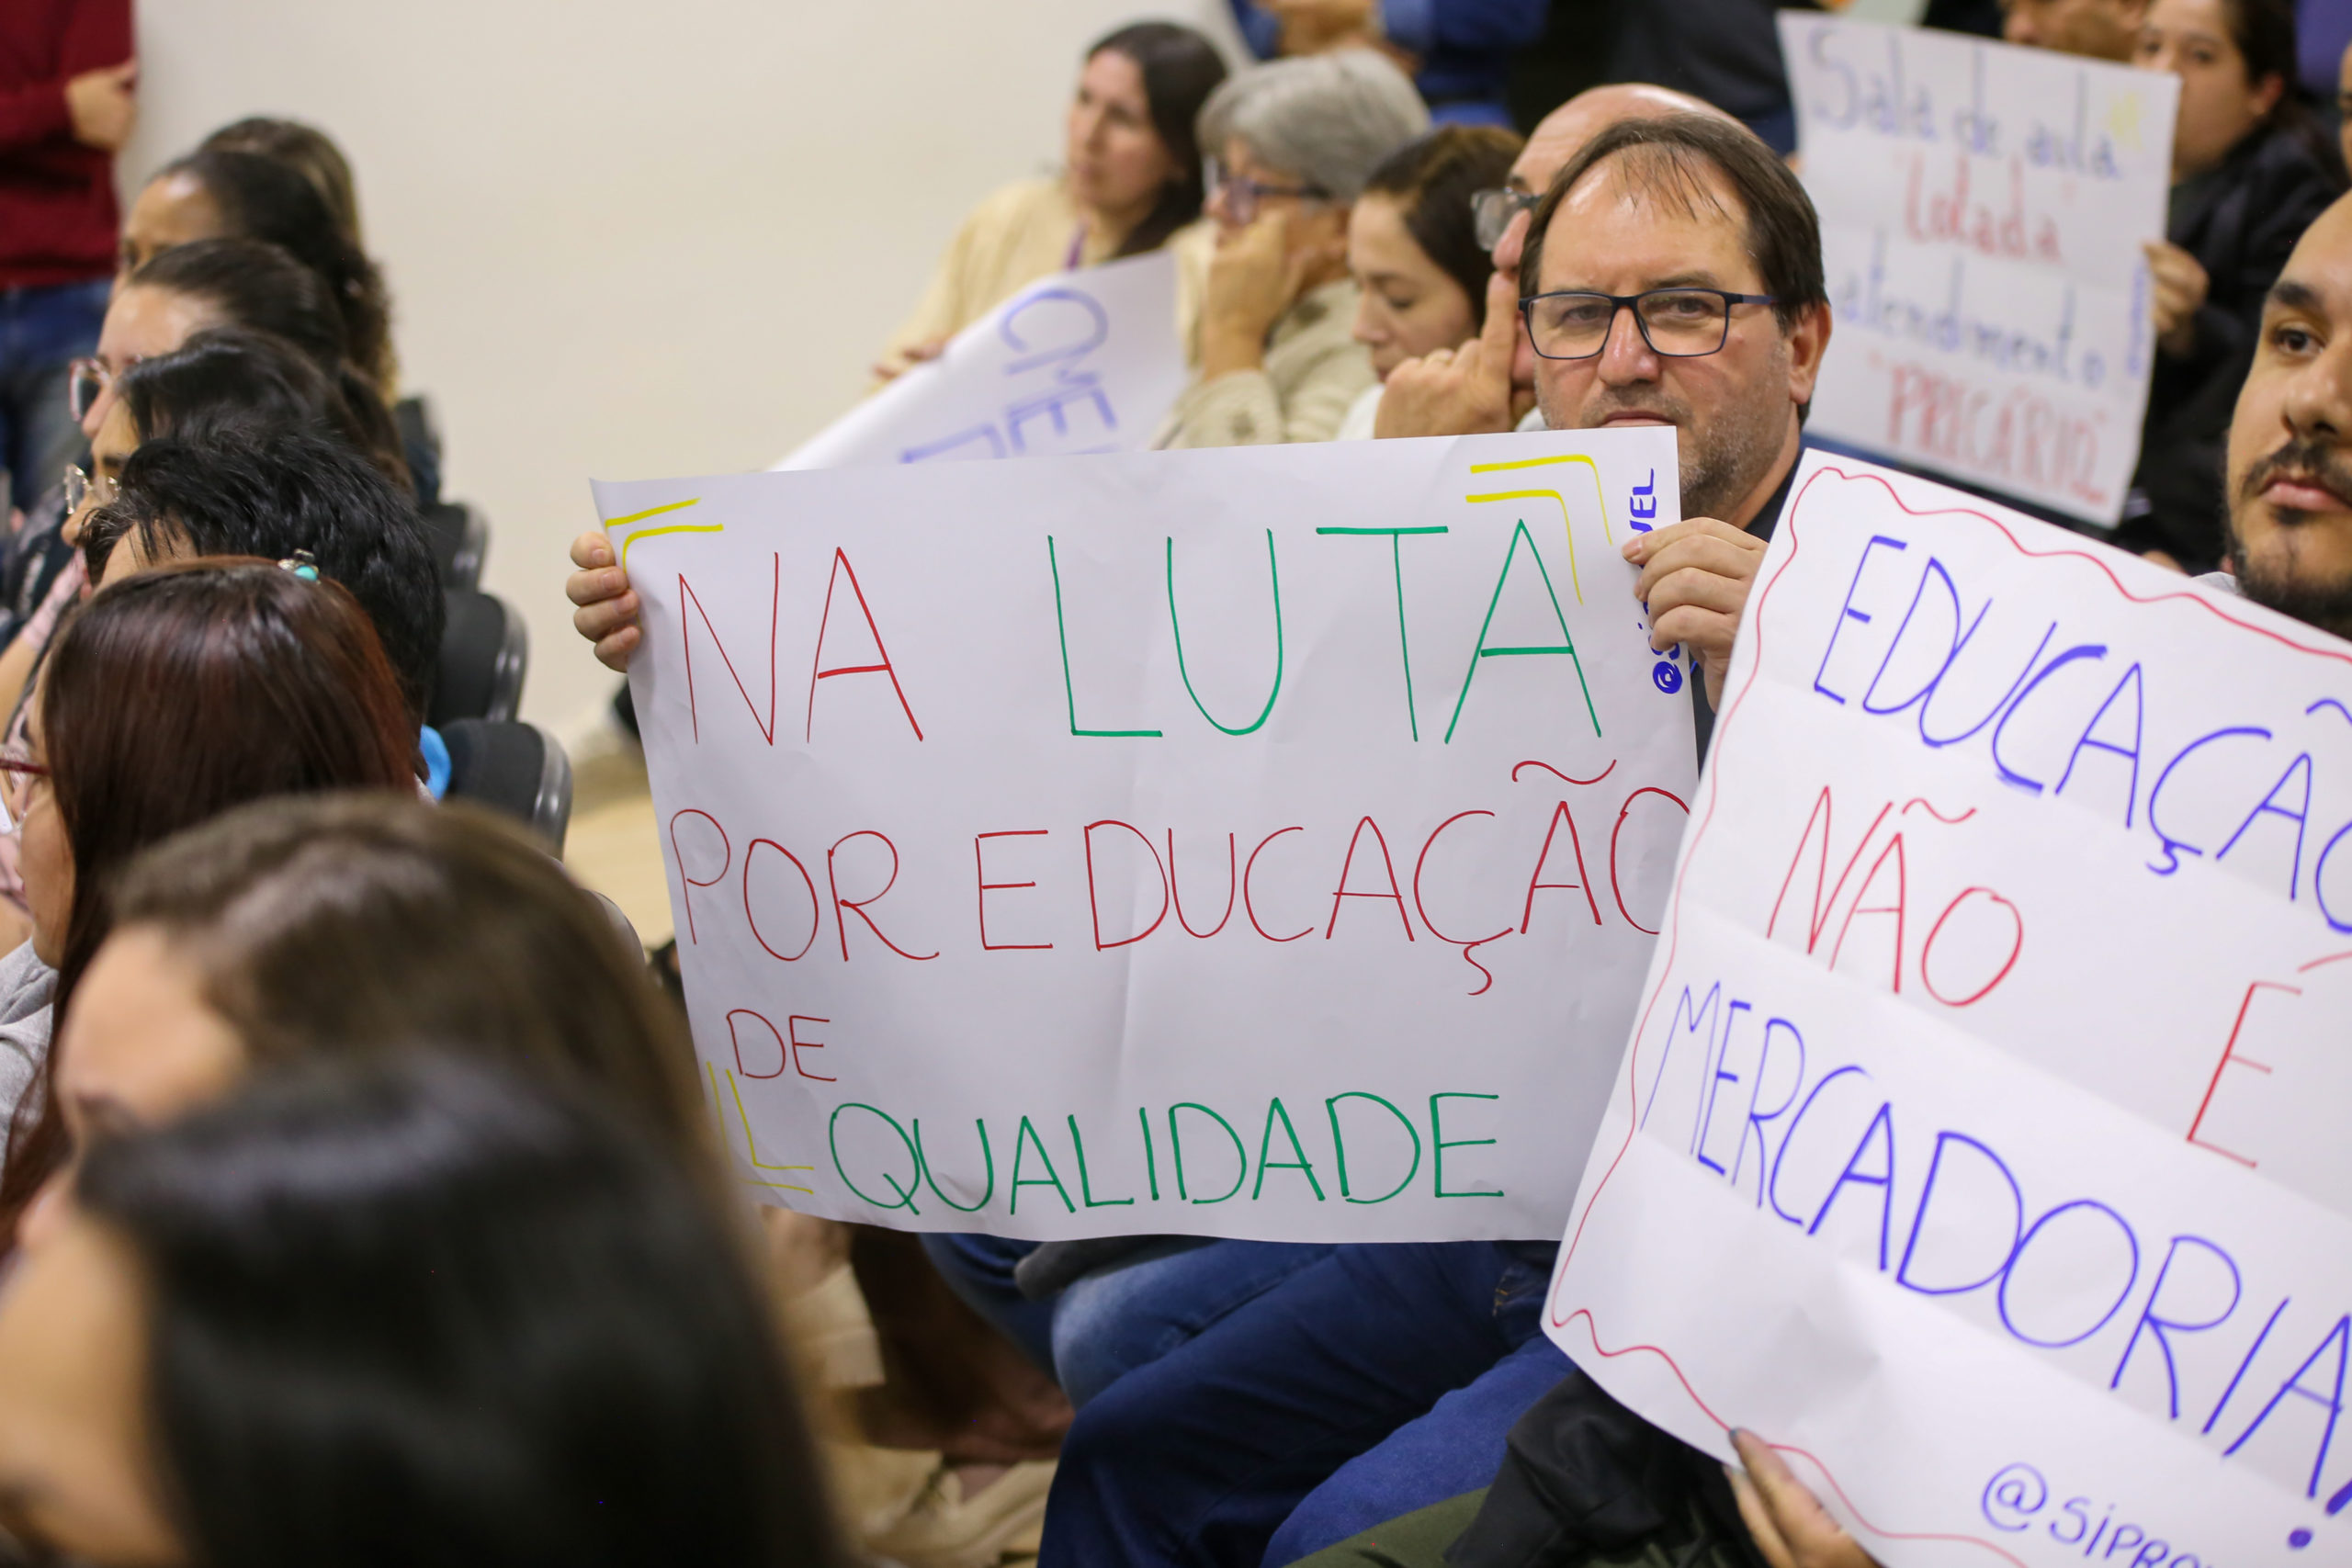 Sala de aula
"Lotada"
atendimento
"PRECÁRIO"
CME
NA LUTA
POR EDUCAÇÃO
DE
QUALIDADE
EDUCAÇÃO
NÃO É
MERCADORIA!